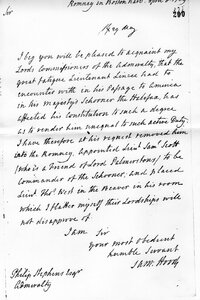 Romney in Boston Harb
Sir
I beg you will be pleased to acquaint my
Lords Commissioners of the Admiralty, that the
great fatigue Lieutenant Linzee had to
encounter with in his Passage to America
in his Majesty's Schooner the Halifax, has
affected his constitution to such a degree
as to render him unequal to such active Duty:
I have therefore at his request removed him
into the Romney, appointed Lieut Saml Scott
(who is a Friend of Lord Palmerstons) to be
Commander of the Schooner, and placed
Lieut Thos West in the Beaver in his room
which I flatter myself their Lordships will
not disapprove of
I am Sir
Your most obedient
humble Servant
Sam Hood
Philip Stephens Esqr
Admiralty